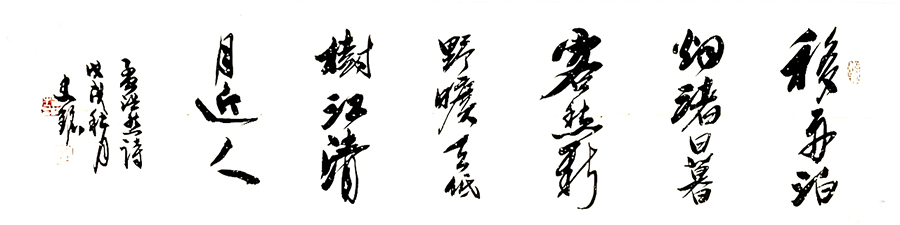 移舟泊
烟渚日暮
客愁新
野曠天低
樹江清
月近人
孟浩然詩
戊戌秋月
史